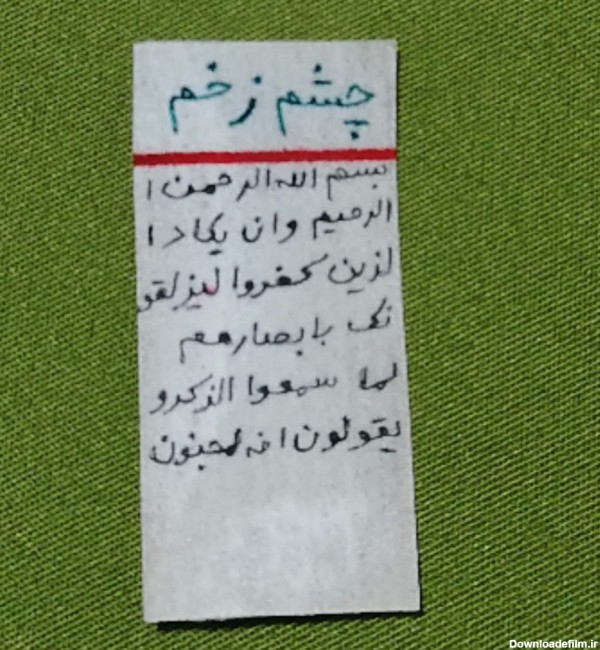 چشم زخم
بسم الله الرحمن ا
الرحیم وان یکاد ا
لزین کفروا لیزلقو
نک بابصارهم
لما سمعوا الذکرو
یقولون انه لمجنون
Downloadefilm.ir